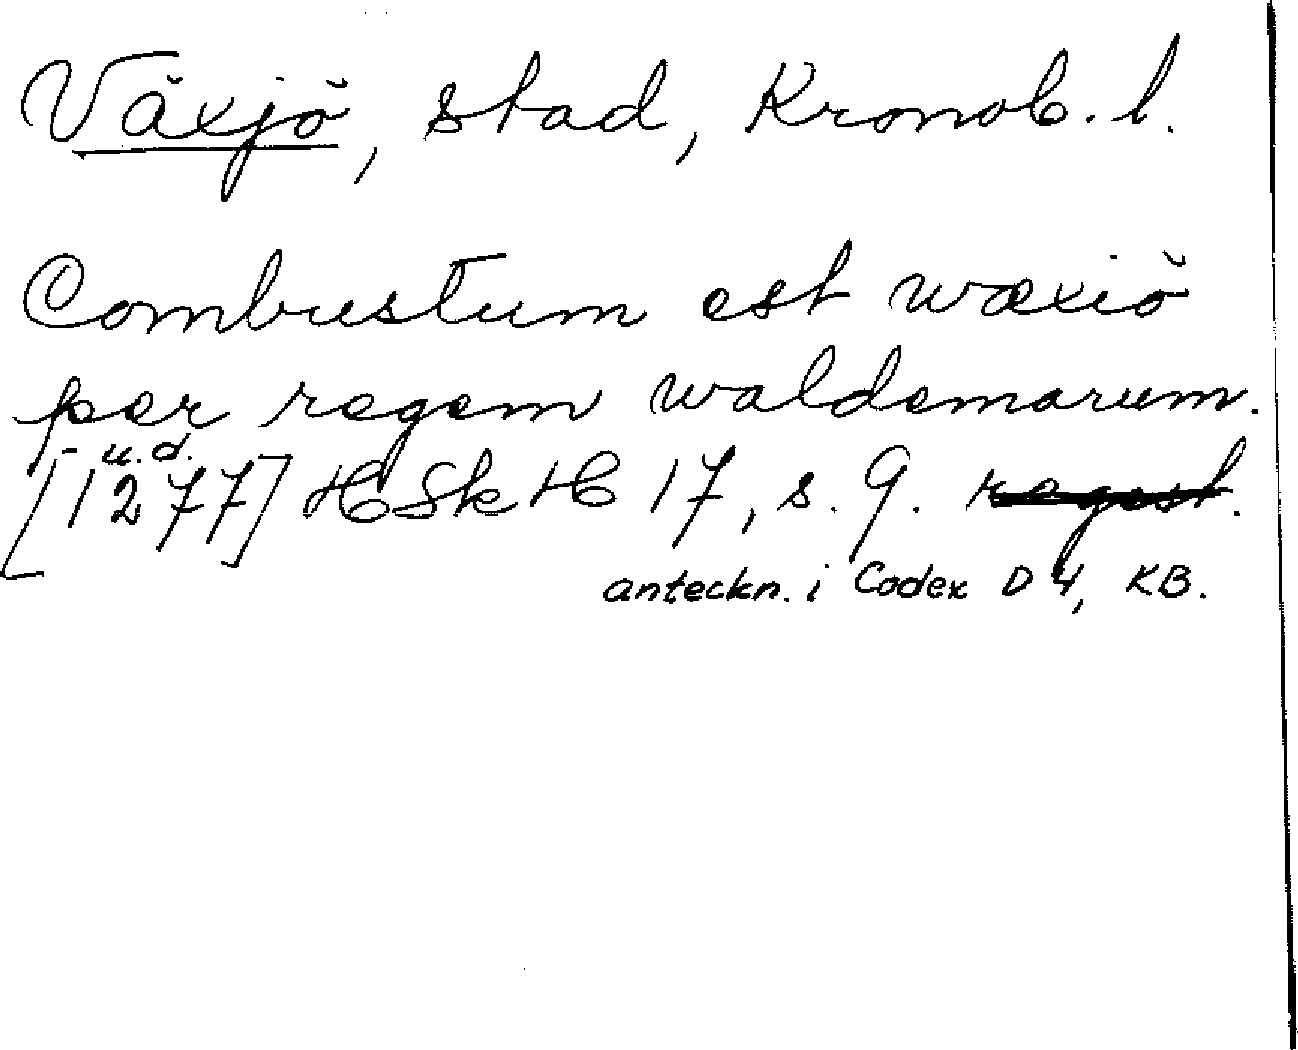 Växjö, stad, Kronob. l.
Combustum est wæxiö
per regem waldemarum.
u.d.
[1277] HSkH 17, s. 9. regest.
anteckn. i Codex D 4, KB.